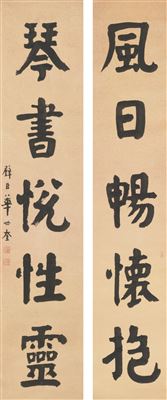 風日暢懷抱
琴書悅性靈
華世奎